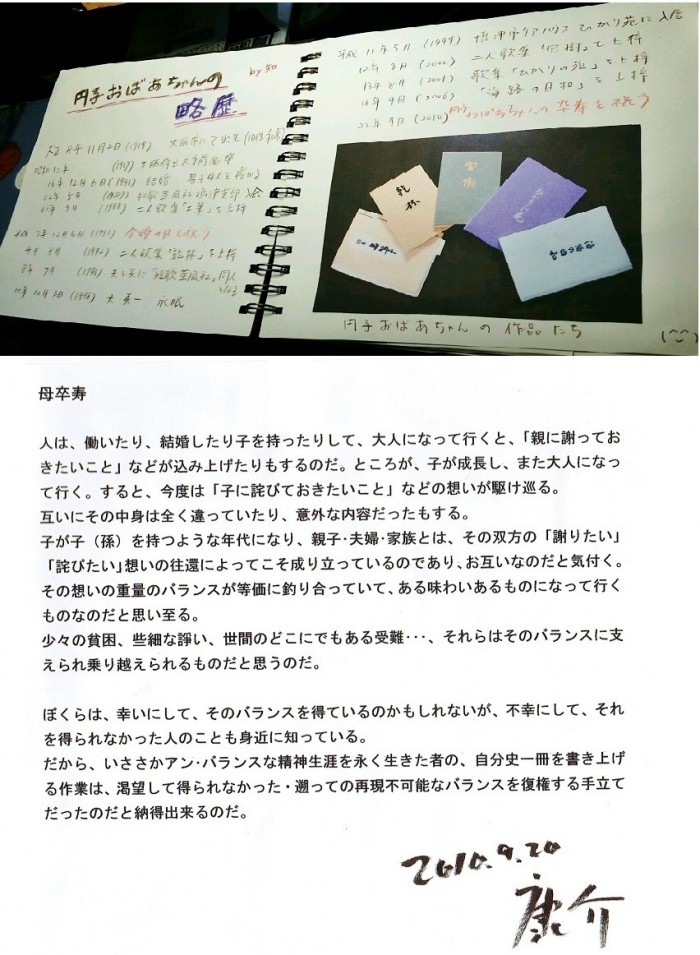 円子おばあちゃんの
略歴
11月2日 (1919) 大阪市にて出生
12月8日 (1941) 結婚
二人歌集「 」を上梓
金婚の日
二人歌集「乾杯」を上梓
永眠
平成 11年5月 (1999) 摂津市ケアハウス ひかり苑に入居
12年8月 (2000) 二人歌集「 樹」を上梓
13年8月 (2001) 歌集「ひかりの苑」を上梓
18年9月 (2006) 「海路の日和」を上梓
22年9月 (2010) 円子おばあちゃんの卒寿を祝う
乾杯
円子おばあちゃんの作品たち
(^_^)
母卒寿
人は、働いたり、結婚したり子を持ったりして、大人になって行くと、「親に謝ってお
きたいこと」などが込み上げたりもするのだ。ところが、子が成長し、また大人になっ
て行く。すると、今度は「子に詫びておきたいこと」などの想いが駆け巡る。
互いにその中身は全く違っていたり、意外な内容だったもする。
子が子（孫）を持つような年代になり、親子・夫婦・家族とは、その双方の「謝りたい」
「詫びたい」想いの往還によってこそ成り立っているのであり、お互いなのだと気付く。
その想いの重量のバランスが等価に釣り合っていて、ある味わいあるものになって行く
ものなのだと思い至る。
少々の貧困、些細な諍い、世間のどこにでもある受難･･･、それらはそのバランスに支
えられ乗り越えられるものだと思うのだ。
ぼくらは、幸いにして、そのバランスを得ているのかもしれないが、不幸にして、それ
を得られなかった人のことも身近に知っている。
だから、いささかアン・バランスな精神生涯を永く生きた者の、自分史一冊を書き上げ
る作業は、渇望して得られなかった・遡っての再現不可能なバランスを復権する手立て
だったのだと納得出来るのだ。
2010.9.20
康介